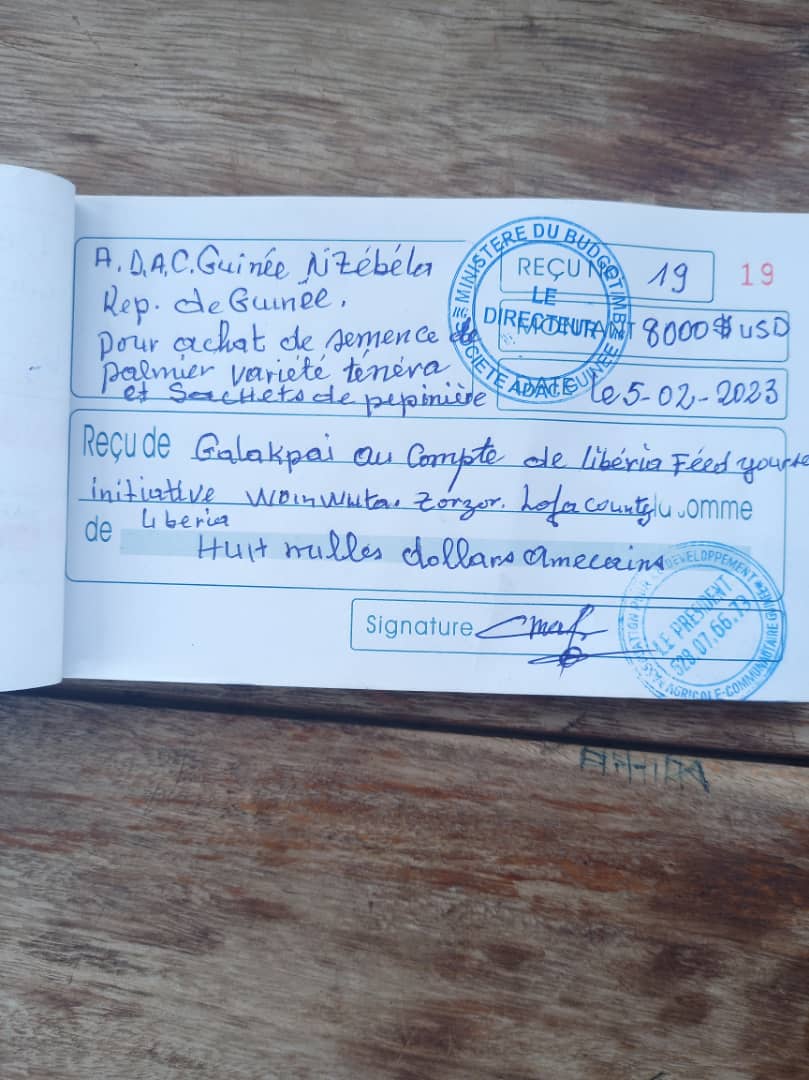 A.D.A.C. Guinée Nzébéla
Rep. de Guinée.
Pour achat de semence de
palmier variété ténéra
et Sachets de pepinière
REÇU N° 19 19
MONTANT 8000 $ USD
DATE le 5-02-2023
MINISTERE DU BUDGET
LE
DIRECTEUR
SOCIETE ADAC GUINEE
Reçu de Galakpai au Compte de libéria Féed yourse
initiative Woinwuta. Zorzor. Lofa county
omme
de Liberia
Huit milles dollars Amecains
Signature
DEVELOPPEMENT
LE PRESIDENT
628.07.66.73
AGRICOLE-COMMUNAUTAIRE